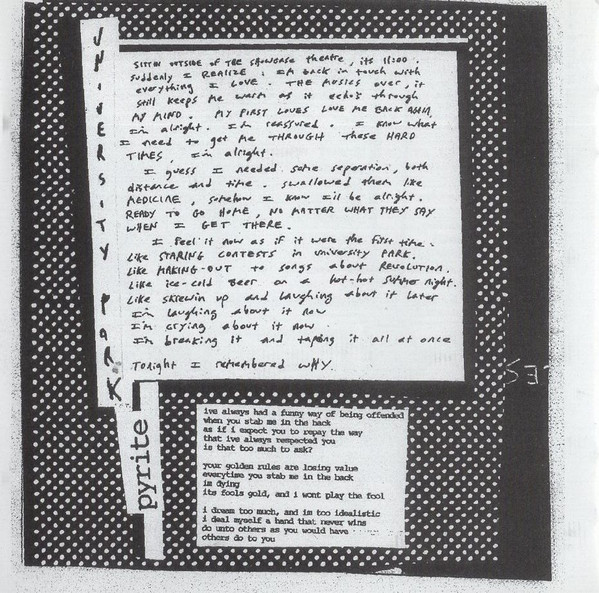 UNIVERSITY PARK
SITTIN OUTSIDE OF THE SHOWCASE theatre, its 11:00.
suddenly I REALIZE, I'm back in touch with
everything I LOVE. THE MUSICS over, it
still keeps me warm as it echo's through
MY MIND. MY FIRST LOVES LOVE ME BACK AGAIN,
I'm alright. I'm reassured. I know what
I need to get me THROUGH these HARD
TIMES, I'm alright.
I guess I needed some seperation, both
distance and time. swallowed them like
MEDICINE, somehow I know I'll be alright.
READY TO GO HOME, NO MATTER WHAT THEY SAY
WHEN I GET THERE.
I feel it now as if it were the first time.
Like STARING CONTESTS in university PARK.
Like MAKING-OUT to songs about REVOLUTION.
Like ice-cold Beer on a hot-hot summer night.
Like skrewin up and laughing about it later
I'm laughing about it now
I'm crying about it now
I'm breaking it and taping it all at once
Tonight I remembered WHY.
pyrite
ive always had a funny way of being offended
when you stab me in the back
as if i expect you to repay the way
that ive always respected you
is that too much to ask?
your golden rules are losing value
everytime you stab me in the back
is dying
its fools gold, and i wont play the fool
i dream too much, and im too idealistic
i deal myself a hand that never wins
do unto others as you would have
others do to you